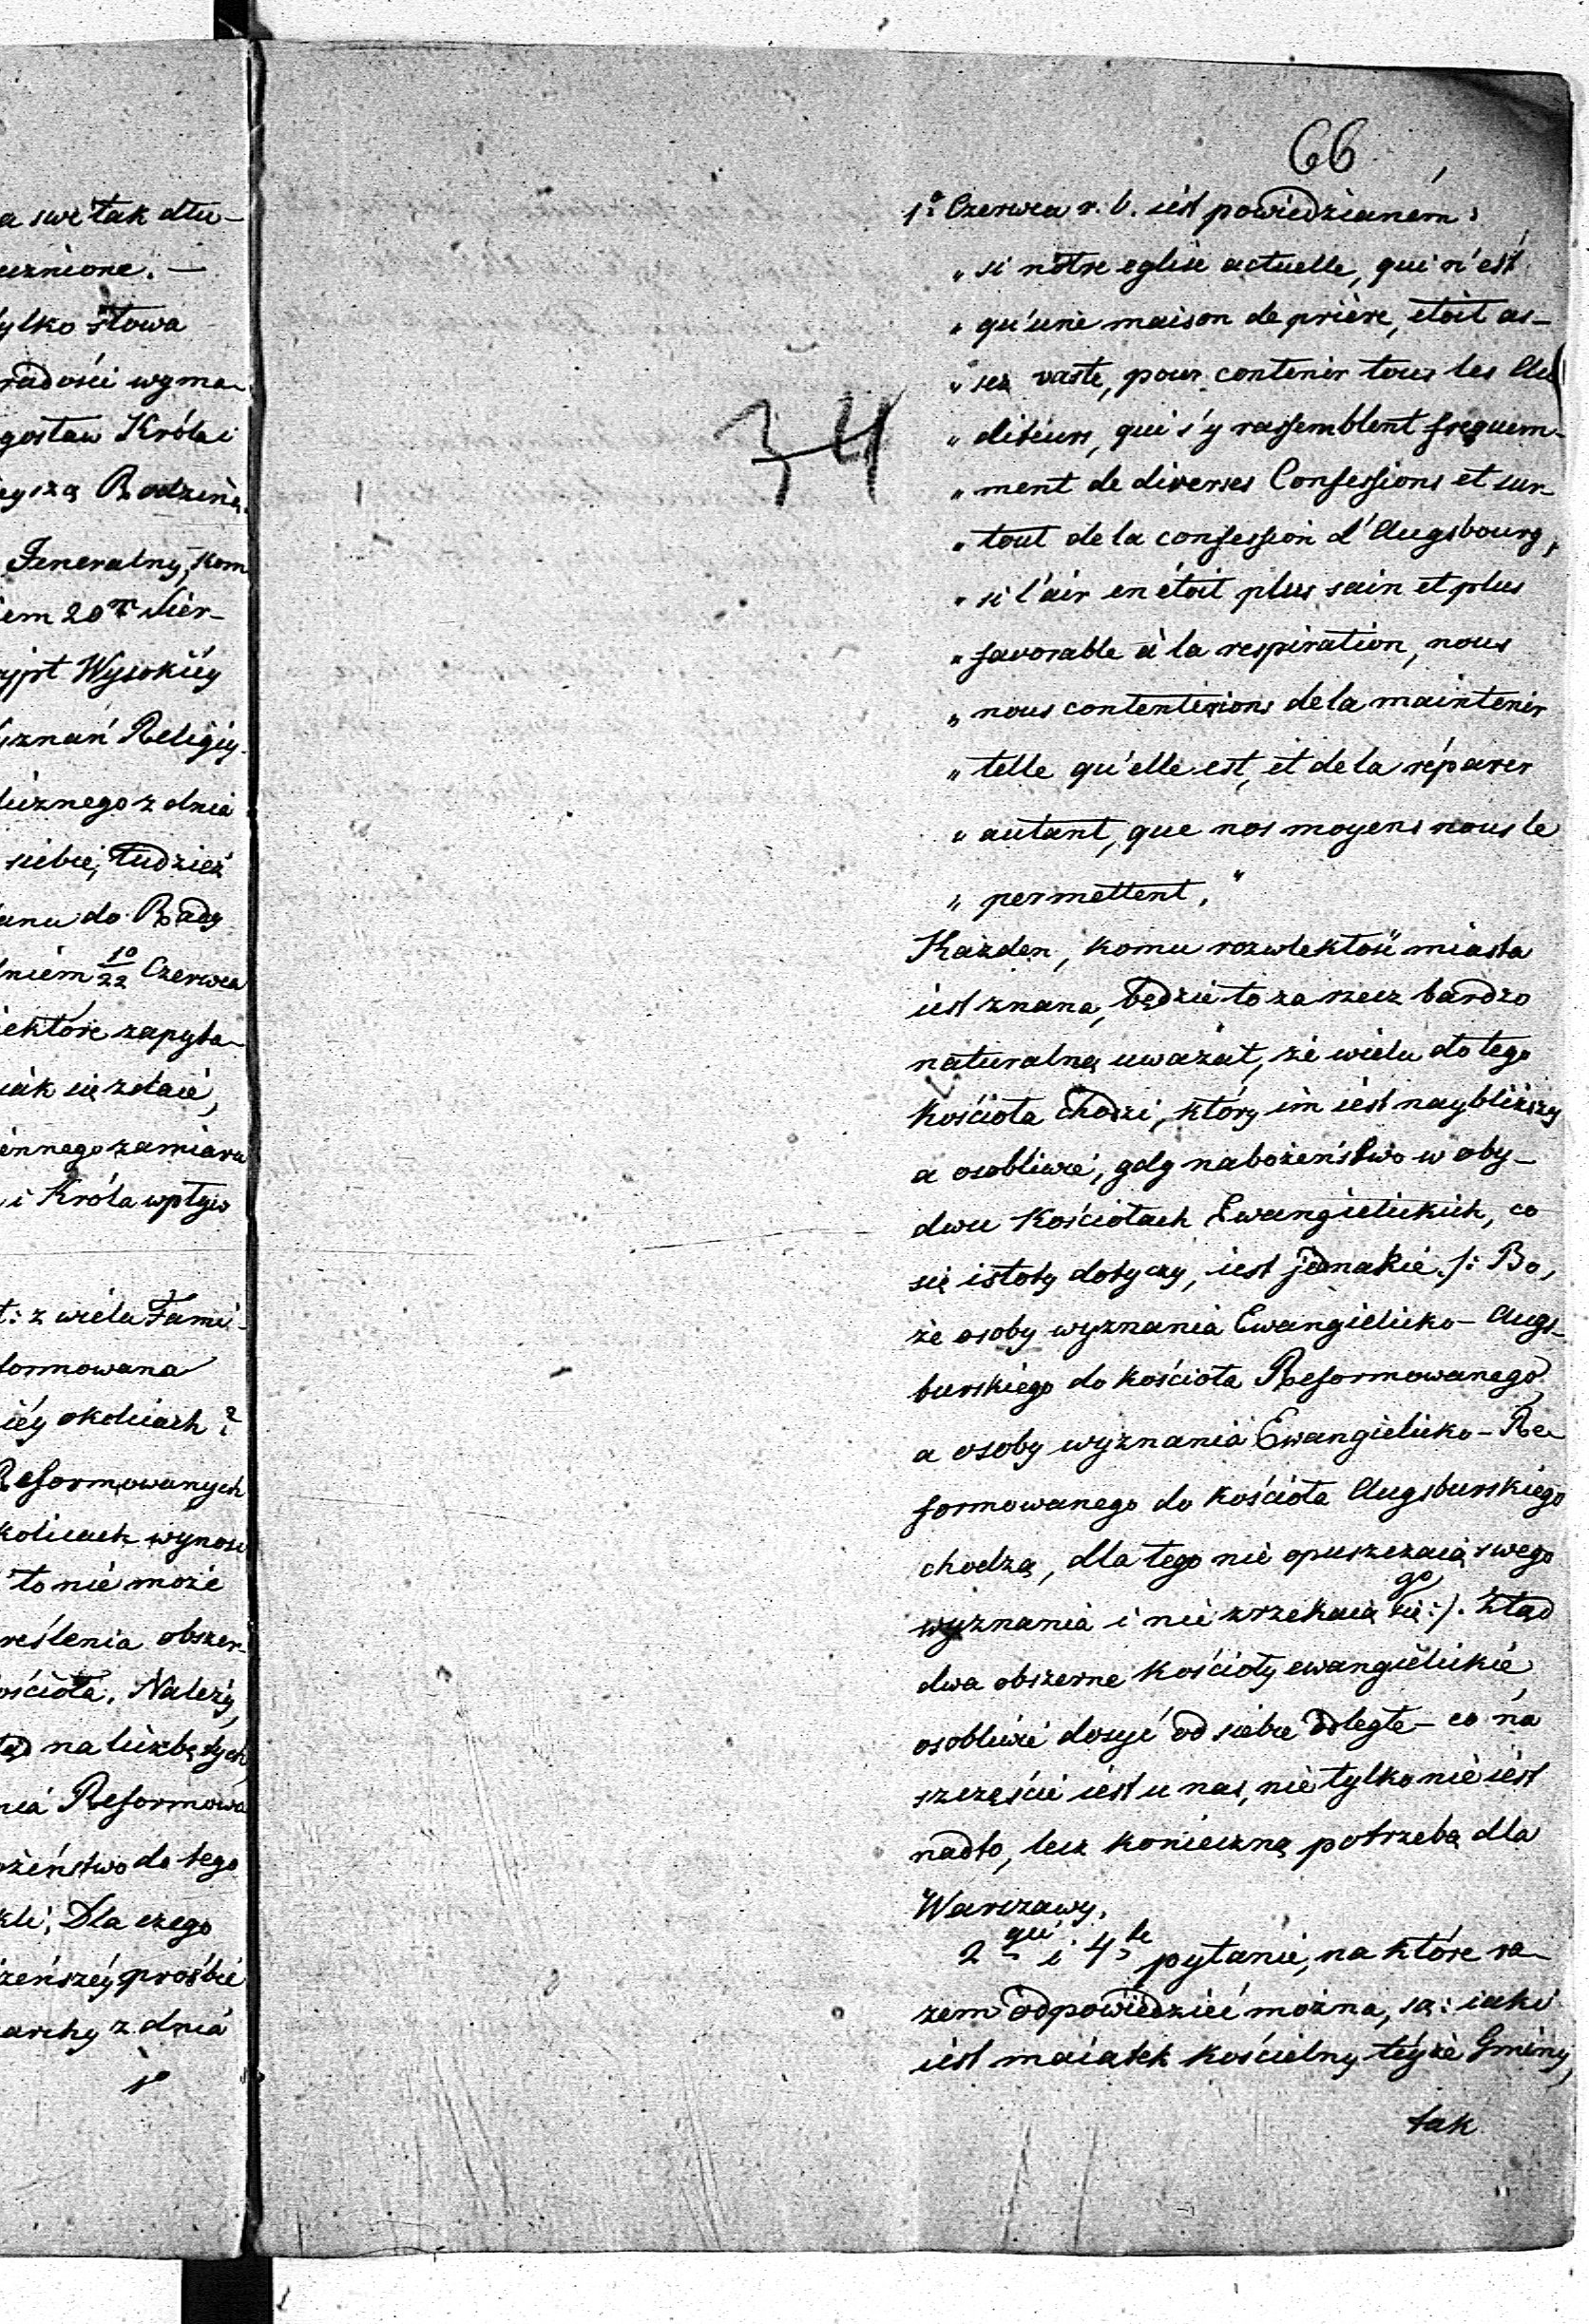 66
34
a swe tak dłu-
uznione. —
tylko słowa
radości wyma-
gosław Króla i
eyszą Rodzinę.
Jeneralny, kom
iem 20ᵐ Sier-
Wysokiéy
yznań Religiy-
licznego z dnia
siebie, tudzież
anu do Rady
dniem 10/22 Czerwca
iektóre zapyta-
iak się zdaie,
innego zamiaru
i Króla wpływ
t: z wielu Fami-
formowana
iéy okolicach?
Reformowanych
kolicach wynosi
to nie może
reślenia obszer-
ościoła. Należy,
tąd na liczbę tych,
nia Reformowa
ożeństwo do tego
kli; Dla czego
żeńszéy prośbie
archy z dnia
1º
1º Czerwca r. b. iest powiedzianém:
„ si nôtre eglise actuelle, qui n'est
„ qu'une maison de prière, étoit as-
„ sez vaste, pour contenir tous les Au
„ diteurs, qui s'y rassemblent frequem-
„ ment de diverses Confessions et sur-
„ tout de la confession d'Augsbourg,
„ si l'air en étoit plus sain et plus
„ favorable à la respiration, nous
„ nous contenterions de la maintenir
„ telle qu'elle est, et de la réparer
„ autant, que nos moyens nous le
„ permettent."
Każden, komu rozwlekłość miasta
iest znana, będzie to za rzecz bardzo
naturalną uważał, że wielu do tego
Kościoła chodzi, który im iest naybliższy
a osobliwie, gdy nabożeństwo w oby-
dwu Kościołach Ewangielickich, co
się istoty dotyczy, iest jednakie /: Bo,
że osoby wyznania Ewangielicko-Augs-
burskiego do kościoła Reformowanego,
a osoby wyznania Ewangielicko-Re-
formowanego do kościoła Augsburskiego
chodzą, dla tego nie opuszczaią swego
wyznania i nie zrzekaią się go :/. Ztąd
dwa obszerne Kościoły ewangielickie,
osobliwie dosyć od siebie odległe — co na
szczęście iest u nas, nie tylko nie iest
nadto, lecz konieczną potrzebą dla
Warszawy.
2gie i 4te pytanie, na które ra-
zem odpowiedzieć można, są: iaki
iest maiątek kościelny téyże Gminy,
tak